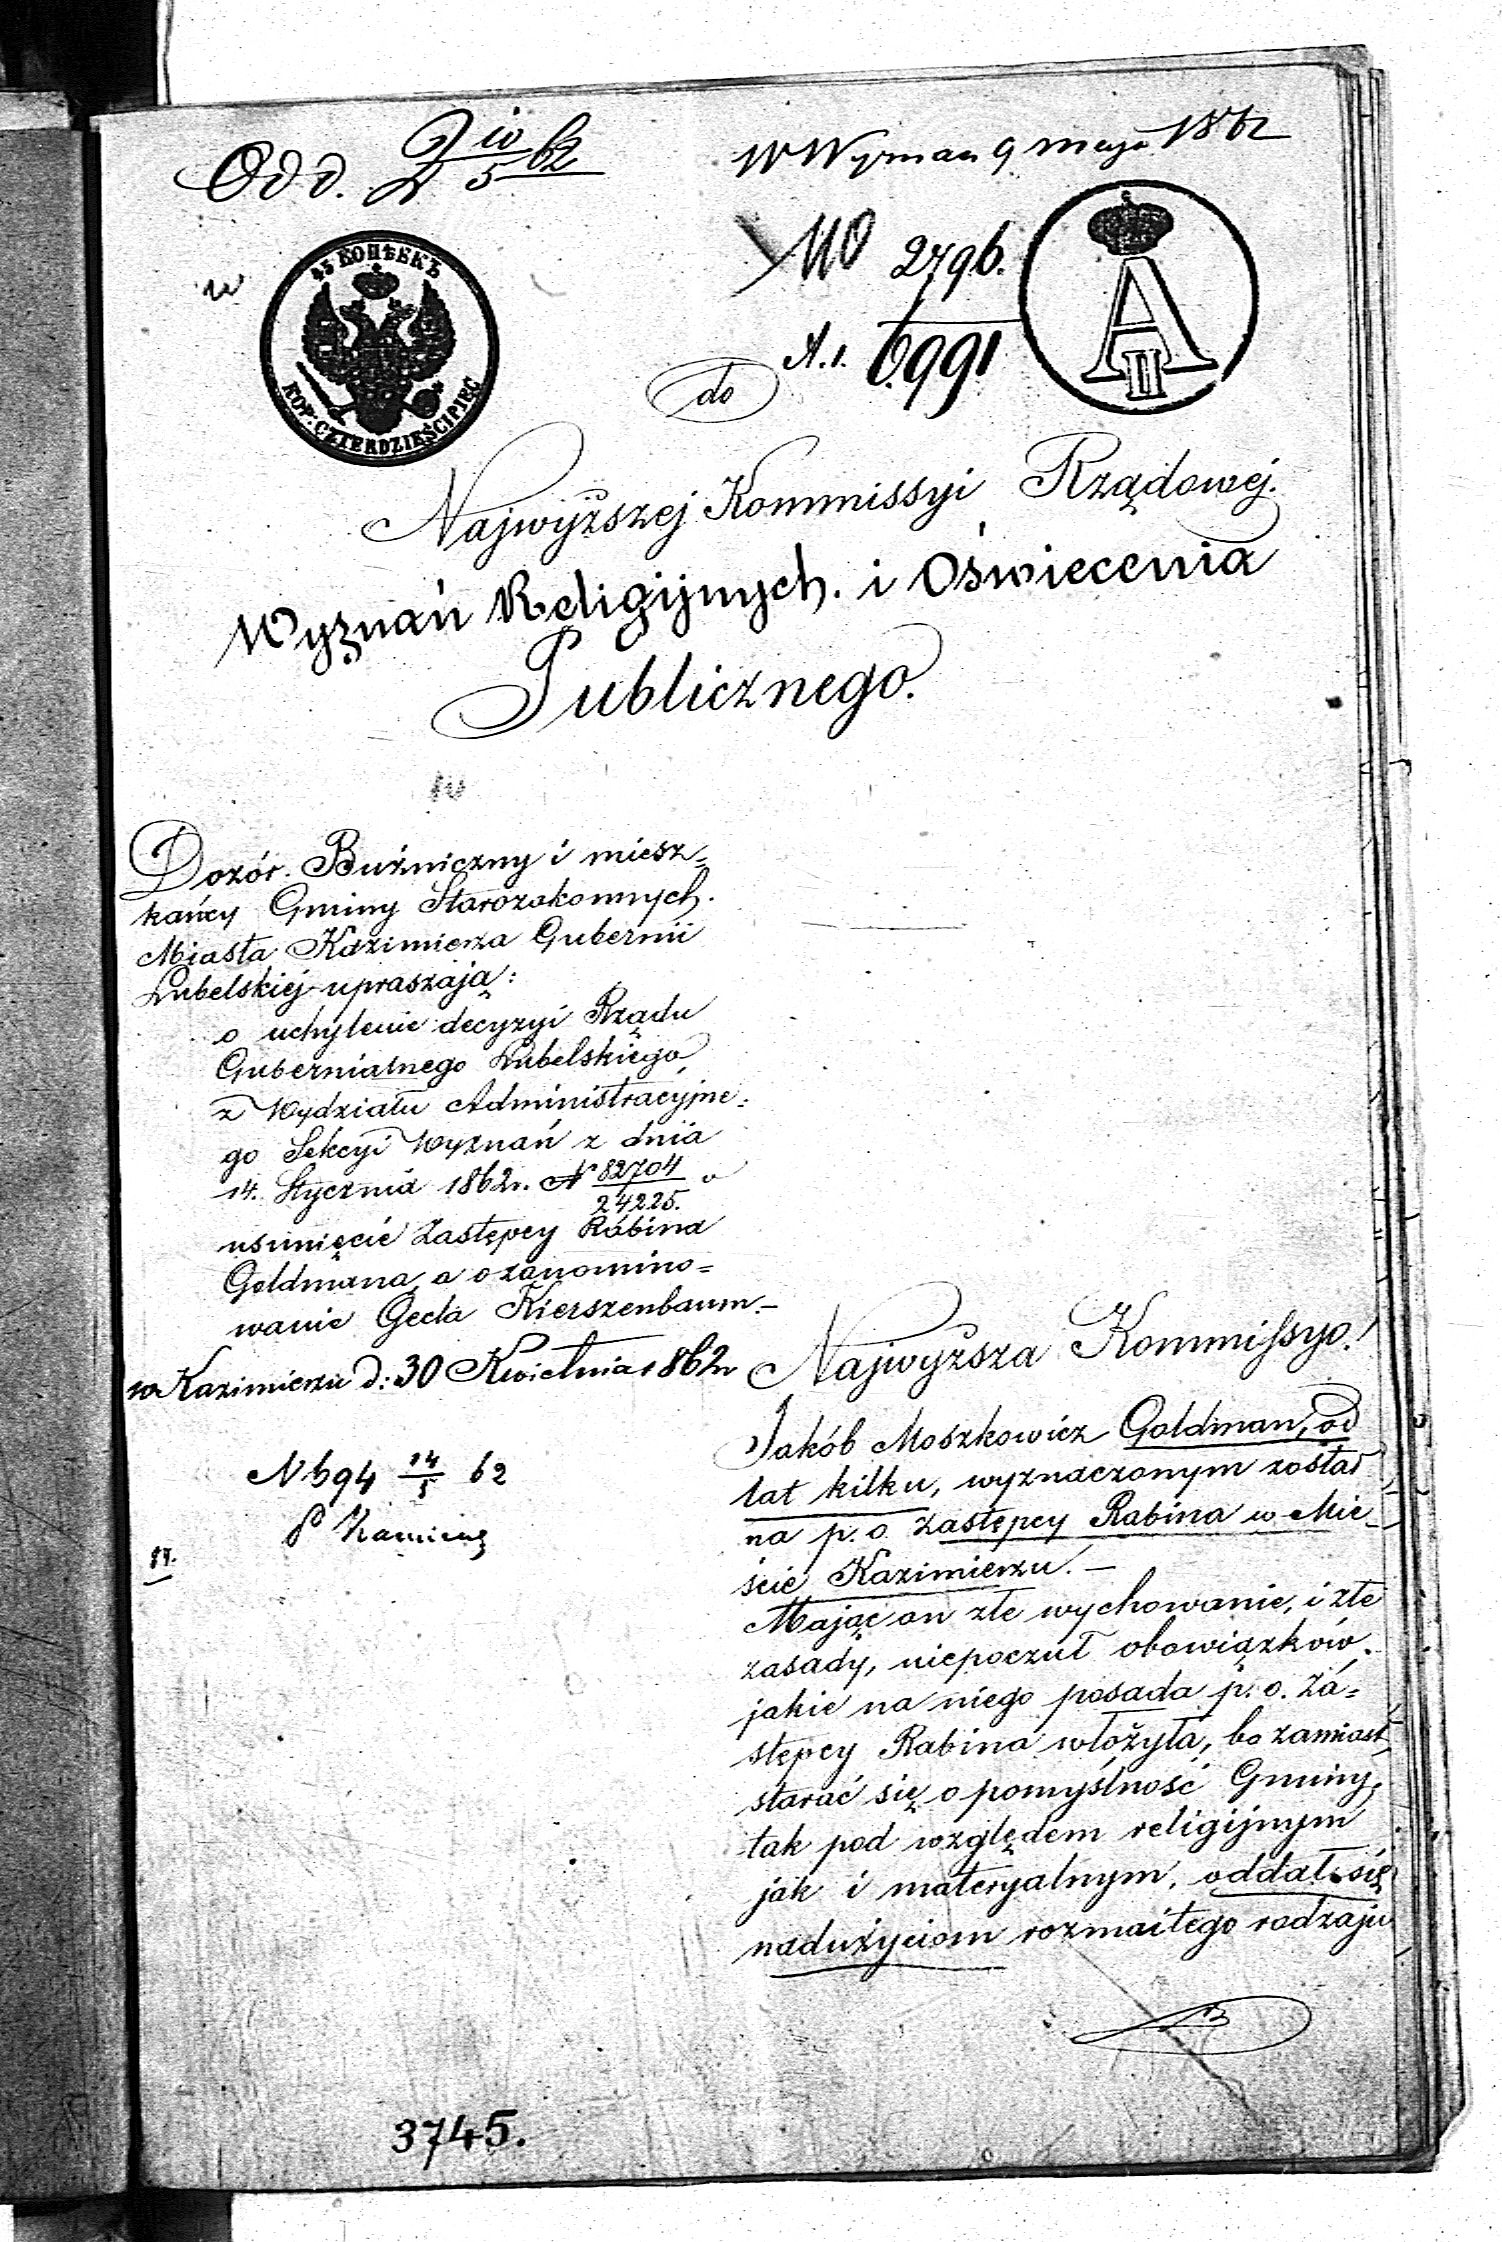 Odd. 2 10/5 62
W Wyznań 9 maja 1862
45 КОПѢЕКЪ
KOP: CZTERDZIEŚCI PIĘĆ
2796.
A.1. 6991
A II
do
Najwyższej Kommissyi Rządowej.
Wyznań Religijnych. i Oświecenia
Publicznego.
Dozór. Buźniczny i miesz=
kańcy Gminy Starozakonnych.
Miasta Kazimierza Gubernii
Lubelskiej upraszają:
o uchylenie decyzyi Rządu
Gubernialnego Lubelskiego,
z Wydziału Administracyjne=
go Sekcyi Wyznań z dnia
14. Stycznia 1862r. N 82704/24225. o
usunięcie Zastępcy Rabina
Goldmana, a o zanomino=
wanie Gecla Kierszenbaum.—
w Kazimierzu d: 30 Kwietnia 1862r
N 694 14/5 62
P Kamieną
17.
Najwyższa Kommissyo!
Jakób Moszkowicz Goldman, od
lat kilku, wyznaczonym został
na p. o. Zastępcy Rabina w Mie_
ście Kazimierzu. —
Mając on złe wychowanie, i złe
zasady, niepoczuł obowiązków.
jakie na niego posada p. o. Za=
stępcy Rabina włożyła, bo zamiast
starać się o pomyślność Gminy,
tak pod względem religijnym
jak i materyalnym, oddał się
nadużyciom rozmaitego rodzaju
3745.